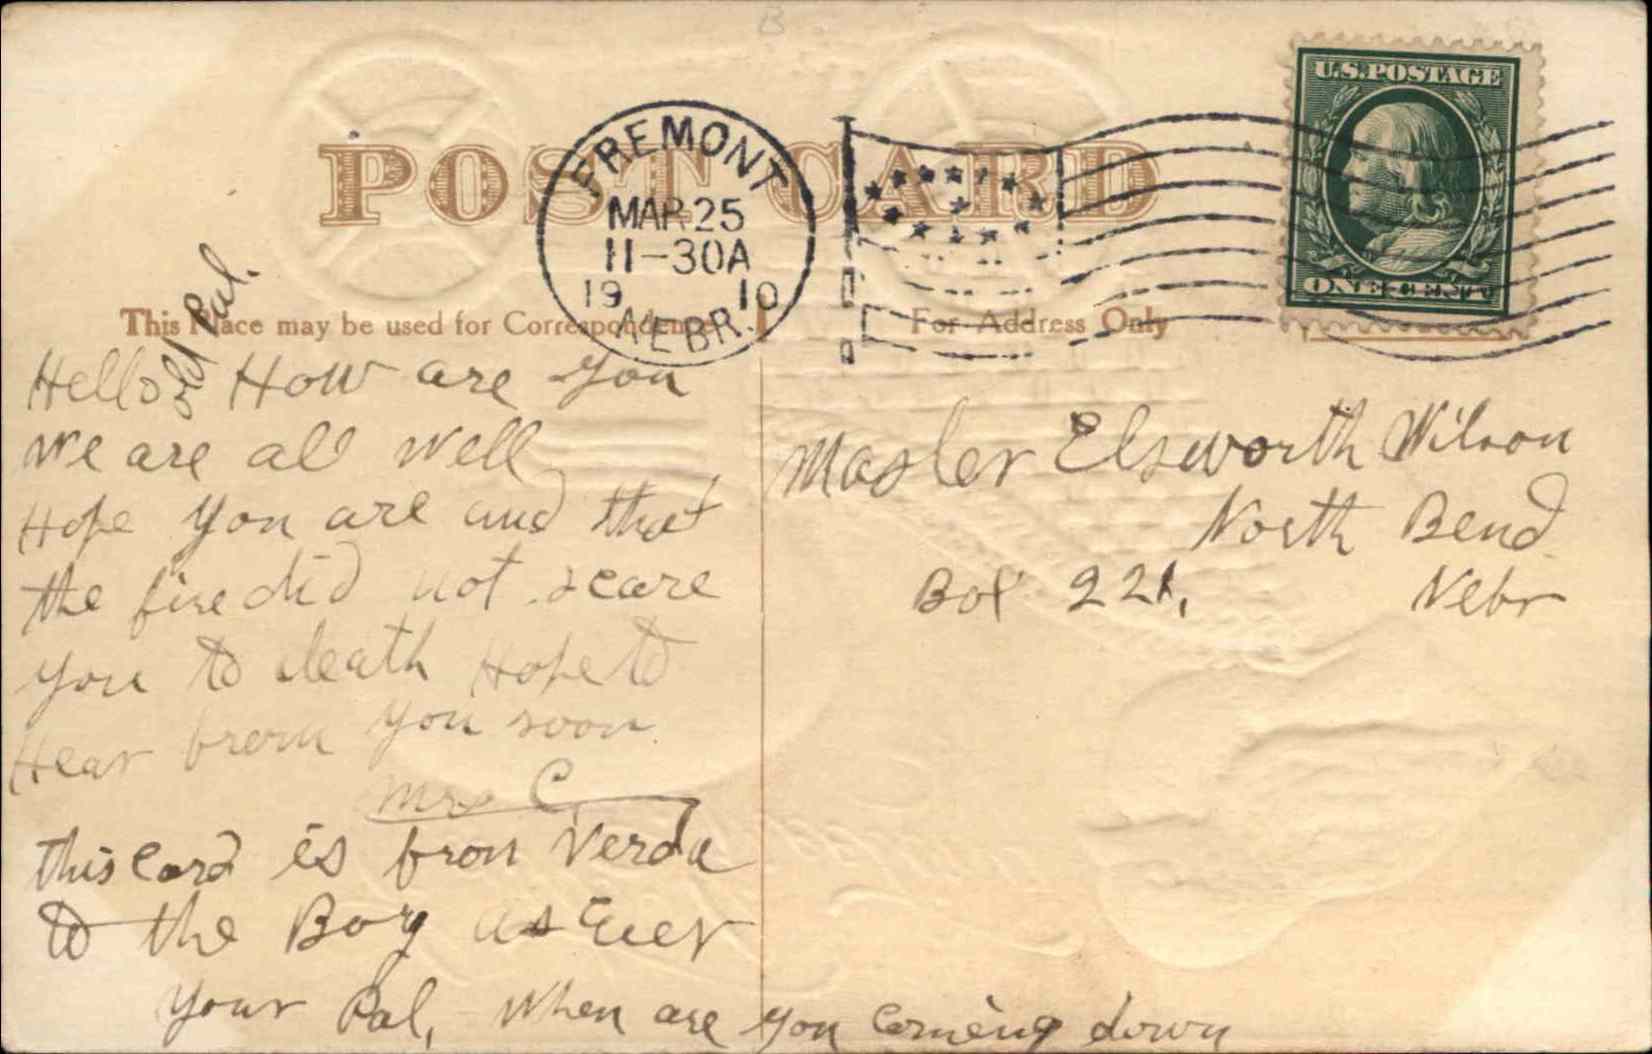 POST CARD
FREMONT
MAR 25
11-30A
19 10
NEBR.
U.S. POSTAGE
ONE CENT
This Place may be used for Correspondence
For Address Only
Hello old Pal. How are you
We are all well
Hope you are and that
the fire did not scare
you to death Hope to
Hear from you soon
Mrs C.
This Card is from Verda
to the Boy as Ever
Your Pal, When are you Comeing down
Master Elsworth Wilson
North Bend
Box 221, Nebr